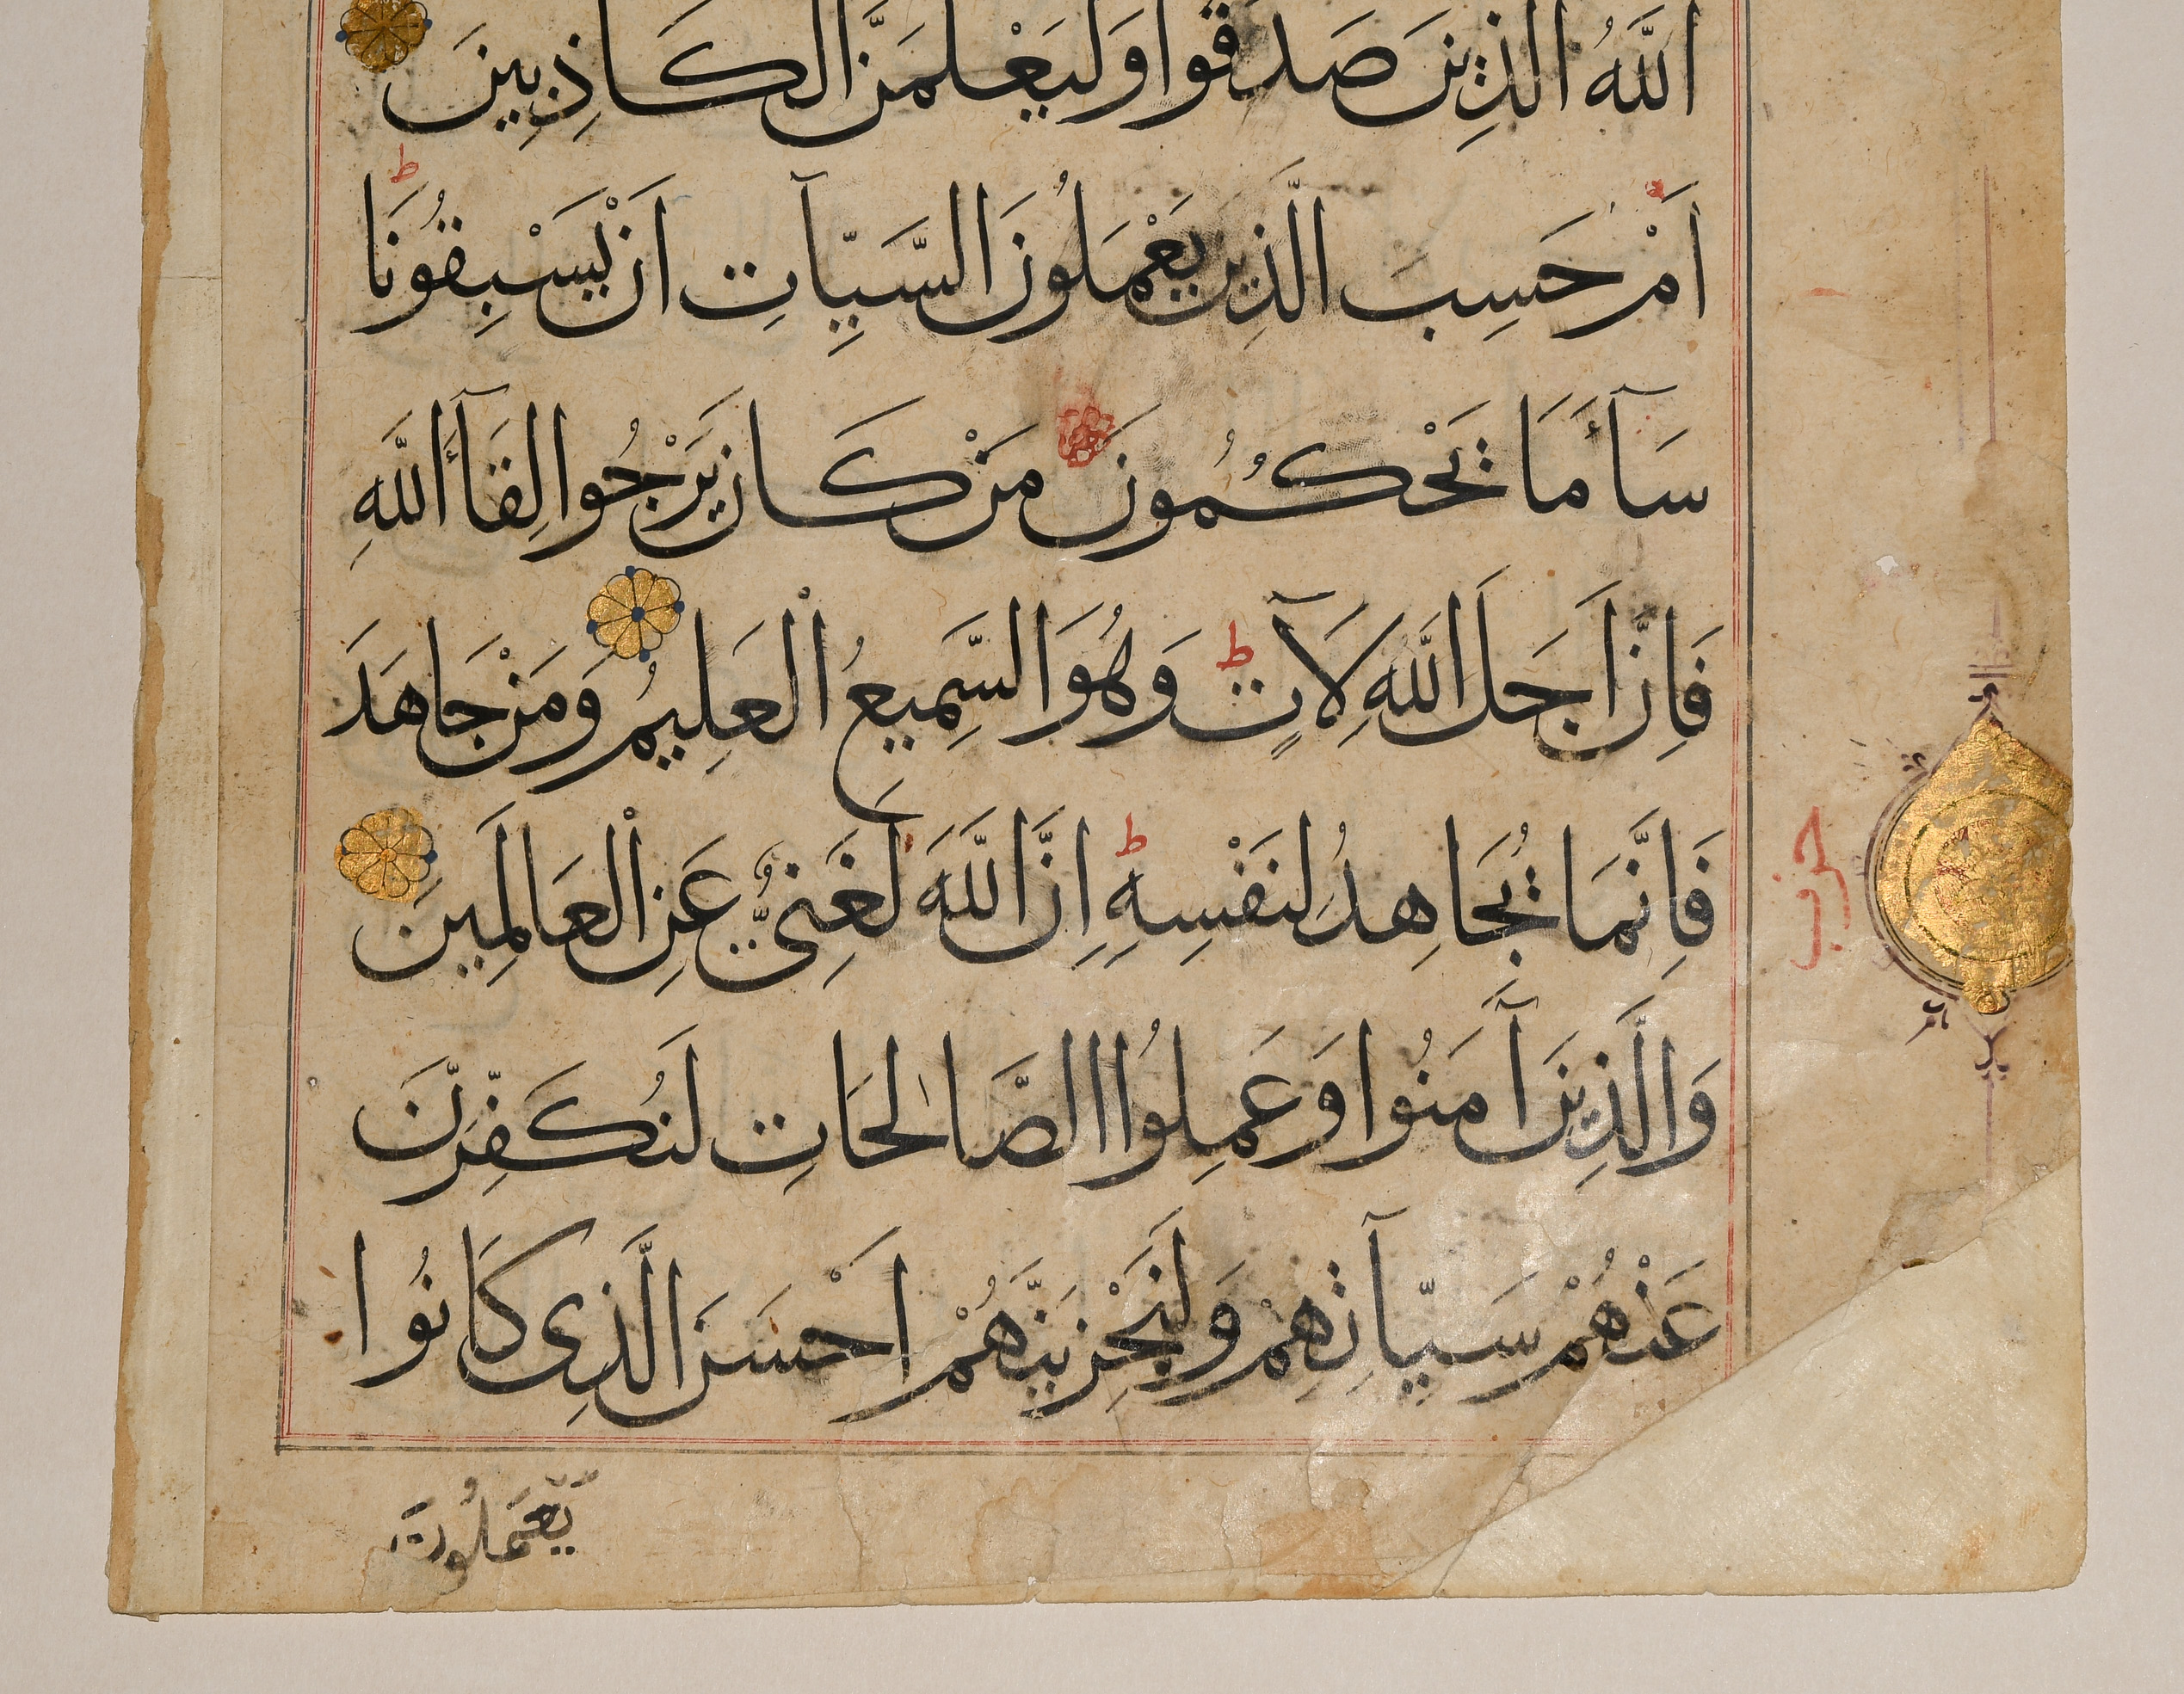 اللَّهُ الَّذِينَ صَدَقُوا وَلَيَعْلَمَنَّ الْكَاذِبِينَ
ط
اَمْ حَسِبَ الَّذِينَ يَعْمَلُونَ السَّيِّآتِ اَنْ يَسْبِقُونَا
سَآءَ مَا تَحْكُمُونَ مَنْ كَانَ يَرْجُوا لِقَآءَ اللَّهِ
ط
فَاِنَّ اَجَلَ اللَّهِ لَآتٍ وَهُوَ السَّمِيعُ الْعَلِيمُ وَمَنْ جَاهَدَ
ط
فَاِنَّمَا يُجَاهِدُ لِنَفْسِهِ اِنَّ اللَّهَ لَغَنِيٌّ عَنِ الْعَالَمِينَ
حزب
وَالَّذِينَ آمَنُوا وَعَمِلُوا الصَّالِحَاتِ لَنُكَفِّرَنَّ
عَنْهُمْ سَيِّآتِهِمْ وَلَنَجْزِيَنَّهُمْ اَحْسَنَ الَّذِى كَانُوا
يَعْمَلُونَ